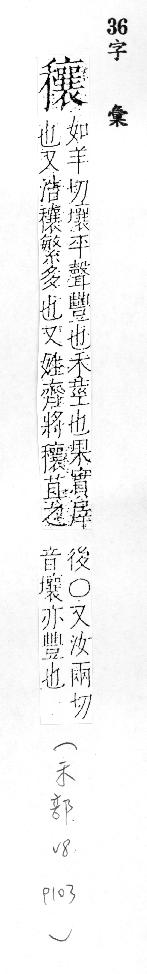 36
字 彙
穰 如羊切壤平聲豐也禾莖也果實犀
也又浩穰繁多也又姓齊將穰苴之
後〇又汝兩切
音壤亦豐也
(禾部 v8. P103)